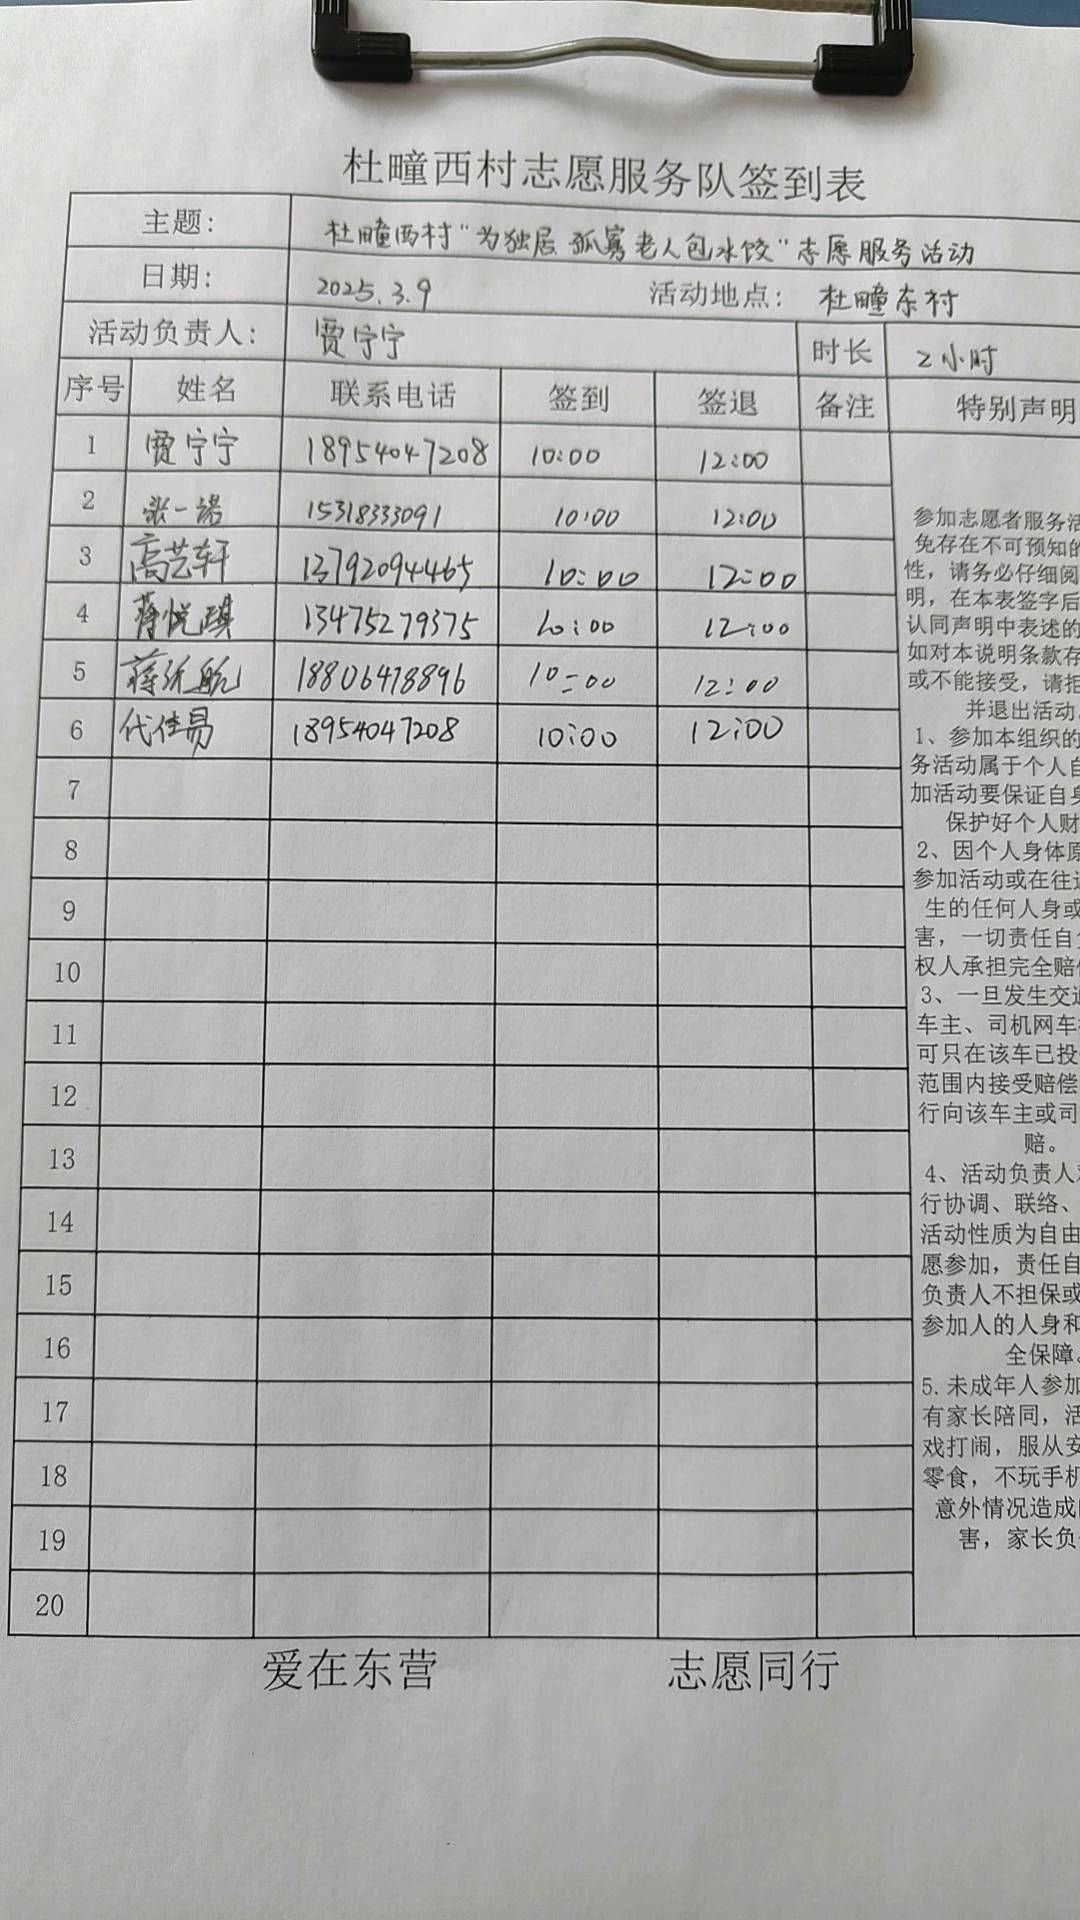 杜疃西村志愿服务队签到表
主题： 杜疃西村“为独居 孤寡老人包水饺”志愿服务活动
日期： 2025.3.9 活动地点： 杜疃东村
活动负责人： 贾宁宁 时长 2小时
序号 姓名 联系电话 签到 签退 备注 特别声明
1 贾宁宁 18954047208 10:00 12:00
2 张一诺 15318333091 10:00 12:00
3 高艺轩 13792094465 10:00 12:00
4 蒋悦琪 13475279375 10:00 12:00
5 蒋 航 18806478896 10:00 12:00
6 代佳易 18954047208 10:00 12:00
7
8
9
10
11
12
13
14
15
16
17
18
19
20
参加志愿者服务活
免存在不可预知的
性，请务必仔细阅
明，在本表签字后
认同声明中表述的
如对本说明条款存
或不能接受，请拒
并退出活动
1、参加本组织的
务活动属于个人自
加活动要保证自身
保护好个人财
2、因个人身体原
参加活动或在往返
生的任何人身或
害，一切责任自负
权人承担完全赔偿
3、一旦发生交通
车主、司机网车
可只在该车已投
范围内接受赔偿
行向该车主或司
赔。
4、活动负责人对
行协调、联络、
活动性质为自由
愿参加，责任自
负责人不担保或
参加人的人身和
全保障。
5.未成年人参加
有家长陪同，活
戏打闹，服从安
零食，不玩手机
意外情况造成
害，家长负
爱在东营 志愿同行